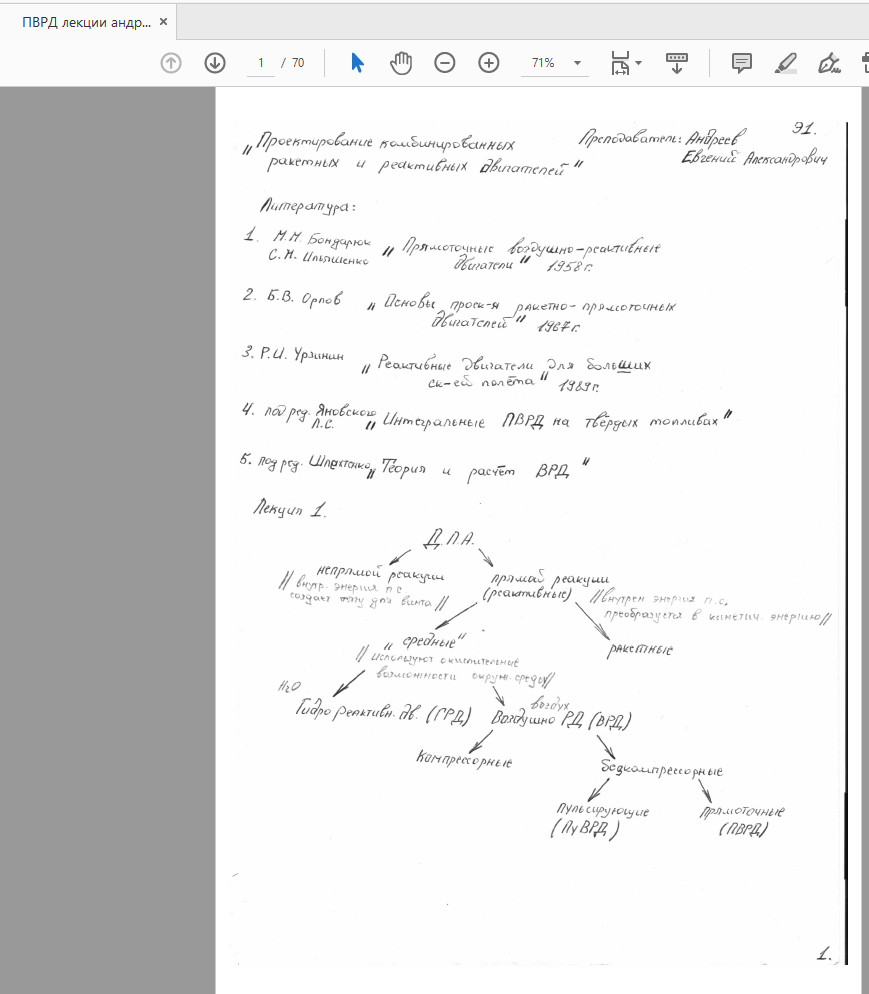 ПВРД лекции андр...
1 / 70
71%
91.
„Проектирование комбинированных
ракетных и реактивных двигателей"
Преподаватель: Андреев
Евгений Александрович
Литература:
1. М.М. Бондарюк
С.М. Ильяшенко
„Прямоточные воздушно-реактивные
двигатели" 1958г.
2. Б.В. Орлов „Основы проек-я ракетно-прямоточных
двигателей" 1967г.
3. Р.И. Урзинин „Реактивные двигатели для больших
ск-ей полёта" 1989г.
4. под ред. Яновского
Л.С.
„Интегральные ПВРД на твёрдых топливах"
5. под ред. Шляхтенко „Теория и расчёт ВРД"
Лекция 1.
Д.Л.А.
непрямой реакции
// внутр. энергия п.с
создаёт тягу для винта //
прямой реакции
(реактивные)
// внутрен энергия п.с.
преобразуется в кинетич. энергию //
„средные"
// используют окислительные
возможности окруж. среды //
ракетные
H₂O
Гидро реактивн. дв. (ГРД)
воздух
Воздушно РД (ВРД)
Компрессорные
безкомпрессорные
Пульсирующие
(ПуВРД)
прямоточные
(ПВРД)
1.